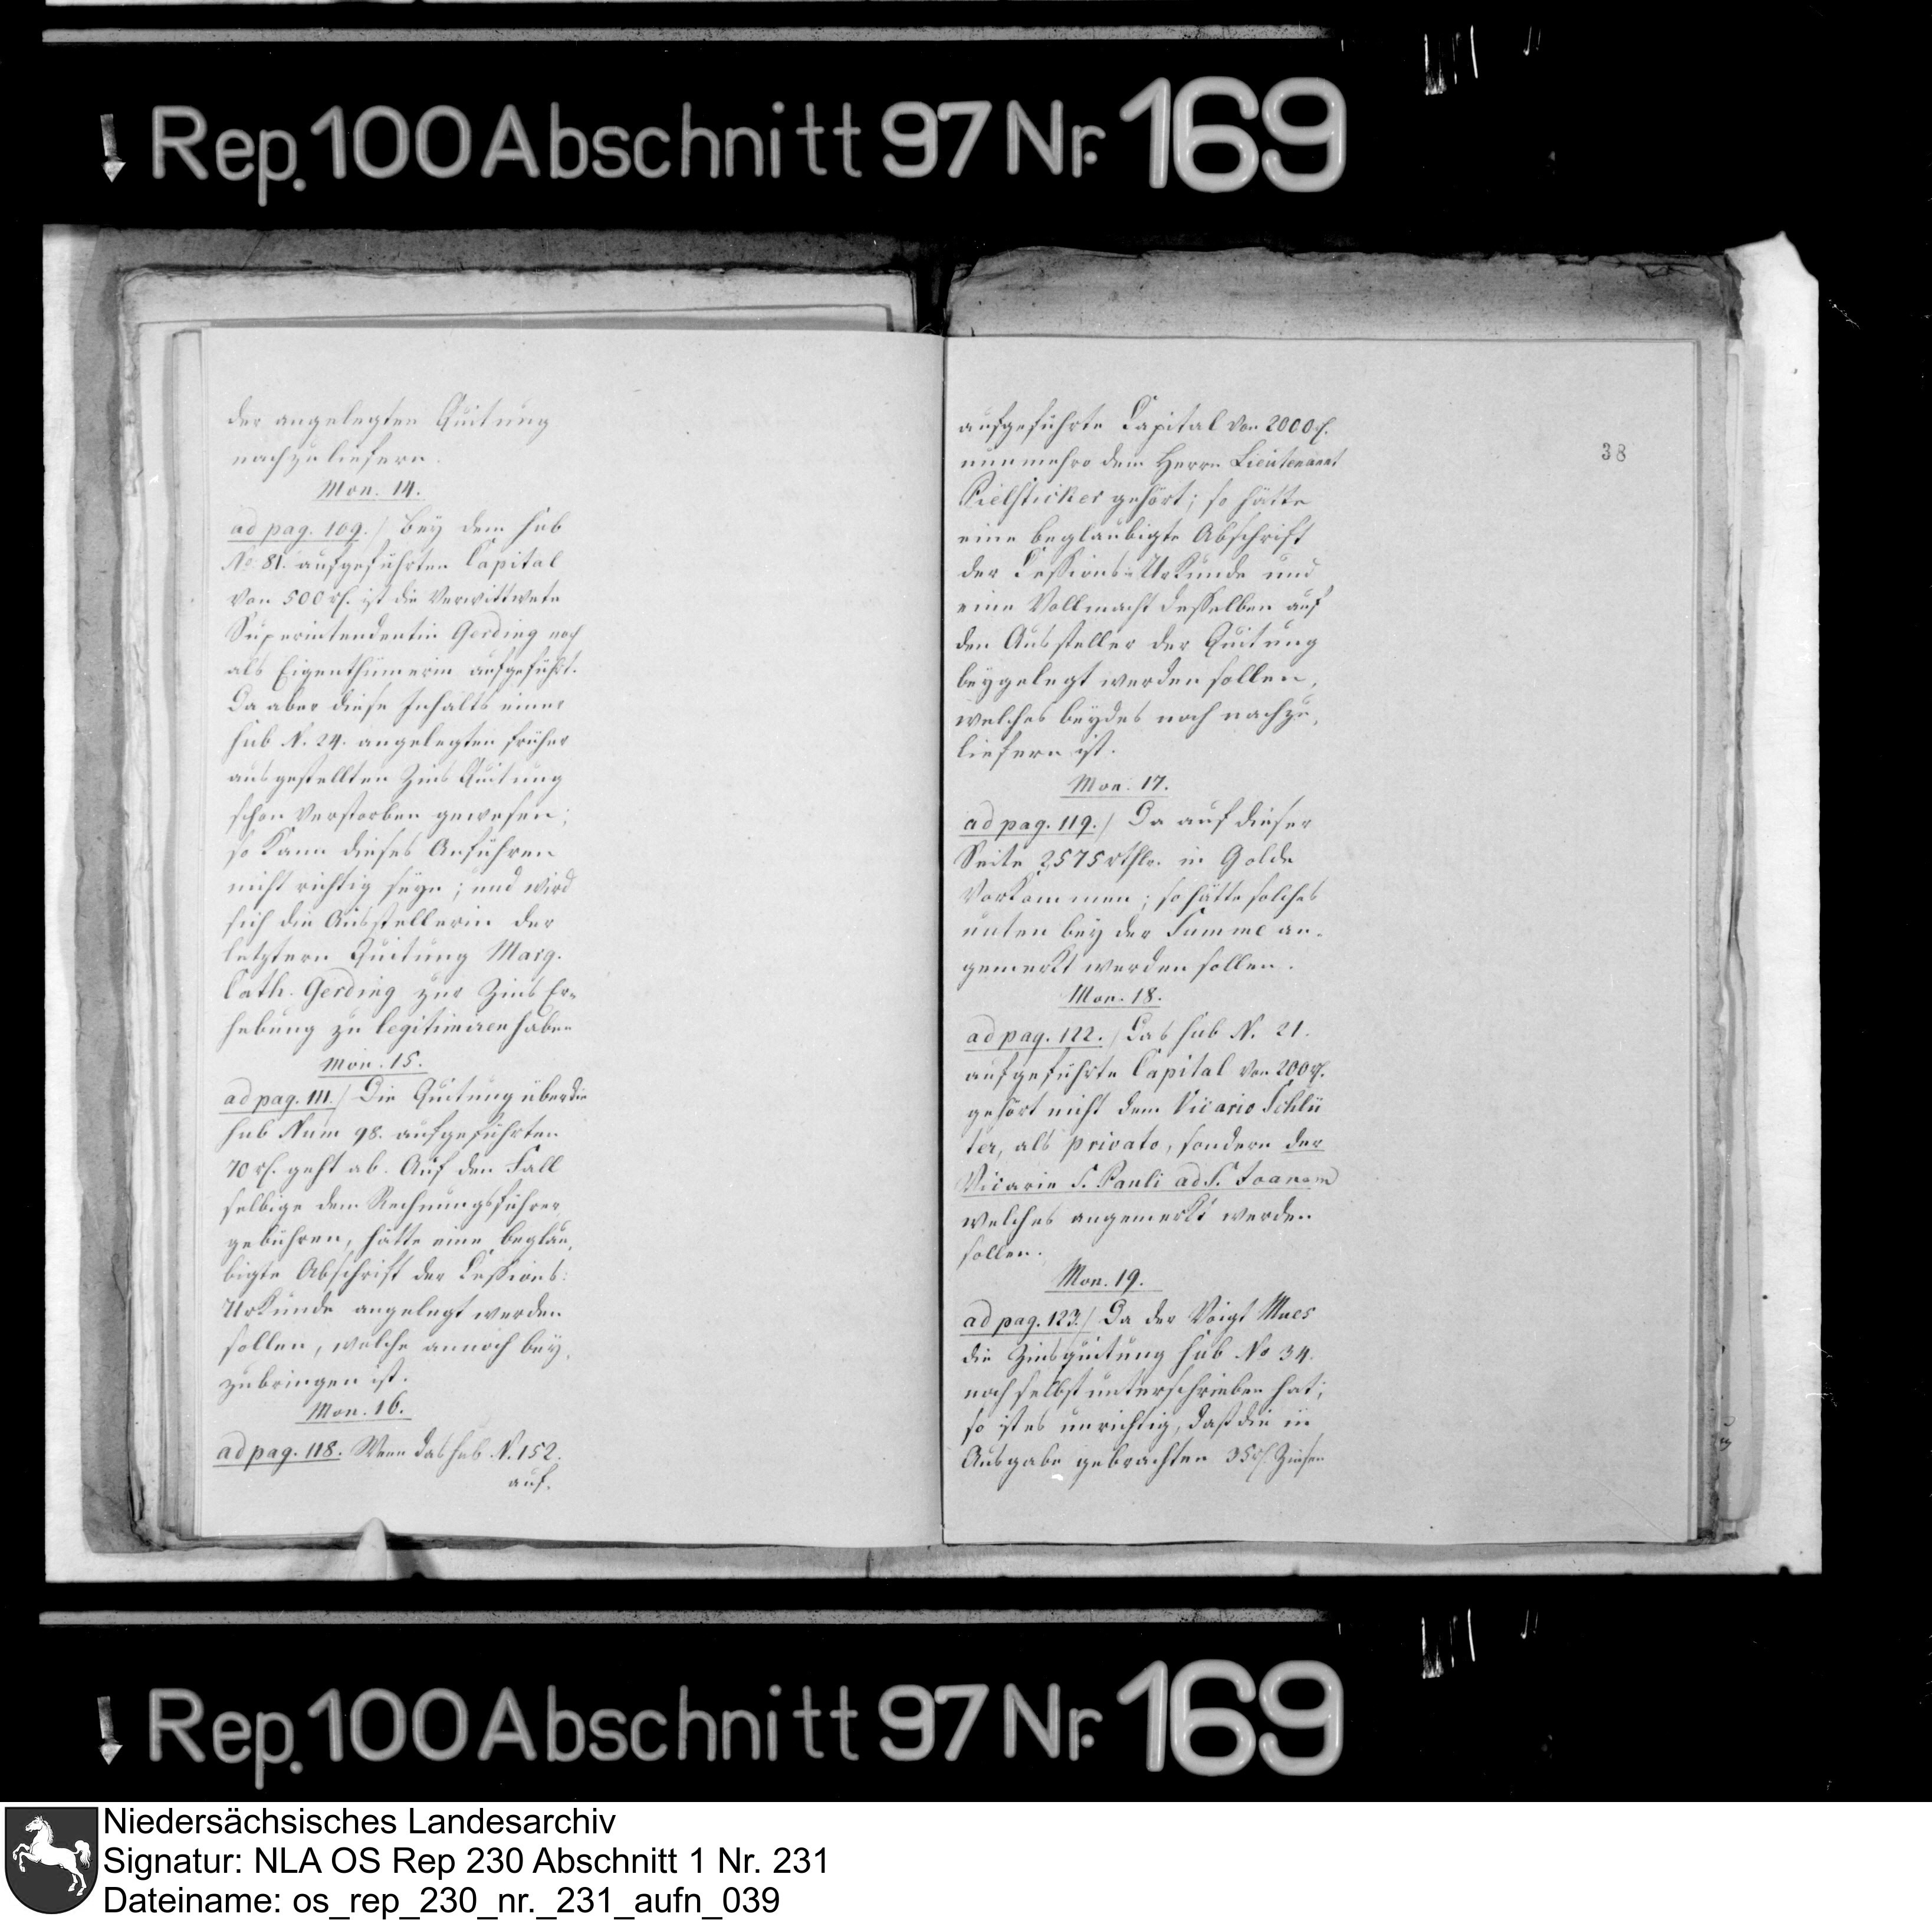 Rep. 100 Abschnitt 97 Nr. 169
der angelegten Quitung
nachzuliefern.
Mon. 14.
ad pag. 109./ Bey dem sub
No. 81. aufgeführten Capital
von 500 rh. ist die verwittwete
Superintendentin Gerding noch
als Eigenthümerin aufgeführt.
Da aber diese Inhalts einer
sub N. 24. angelegten früher
ausgestellten Zins Quitung
schon verstorben gewesen;
so kann dieses Anführen
nicht richtig seyn; und wird
sich die Ausstellerin der
letztern Quitung Marg.
Cath. Gerding zur Zins Er-
hebung zu legitimiren haben
Mon. 15.
ad pag. 111./ Die Quitung über die
sub Num 98. aufgeführten
70 rh. geht ab. Auf den Fall
selbige dem Rechnungsführer
gebühren, hätte eine beglau-
bigte Abschrift der Cessions-
Urkunde angelegt werden
sollen, welche annoch bey-
zubringen ist.
Mon. 16.
ad pag. 118. Wenn das sub N. 152.
auf-
38
aufgeführte Capital von 2000 rh.
nunmehro dem Herrn Lieutenant
Pielsticker gehört; so hätte
eine beglaubigte Abschrift
der Cessions-Urkunde und
eine Vollmacht desselben auf
den Aussteller der Quitung
beygelegt werden sollen,
welches beydes noch nachzu-
liefern ist.
Mon. 17.
ad pag. 119./ Da auf dieser
Seite 2575 rthlr. in Golde
vorkommen; so hätte solches
unten bey der Summe an-
gemerkt werden sollen.
Mon. 18.
ad pag. 122./ Das sub N. 21.
aufgeführte Capital von 200 rh.
gehört nicht dem Vicario Schlü
ter, als privato, sondern der
Vicarie S. Pauli ad S. Joannem
welches angemerkt werden
sollen.
Mon. 19.
ad pag. 123./ Da der Voigt Mues
die Zinsquitung sub No 34.
noch selbst unterschrieben hat;
so ist es unrichtig, daß die in
Ausgabe gebrachten 35 rh. Zinsen
Rep. 100 Abschnitt 97 Nr. 169
Niedersächsisches Landesarchiv
Signatur: NLA OS Rep 230 Abschnitt 1 Nr. 231
Dateiname: os_rep_230_nr._231_aufn_039